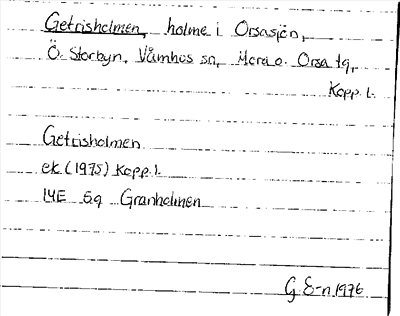 Getrisholmen, holme i Orsasjön,
Ö. Storbyn, Våmhus sn, Mora o. Orsa tg,
Kopp. l.
Getrisholmen
ek (1975) Kopp. l.
14E 5g Granholmen
G. E-n 1976